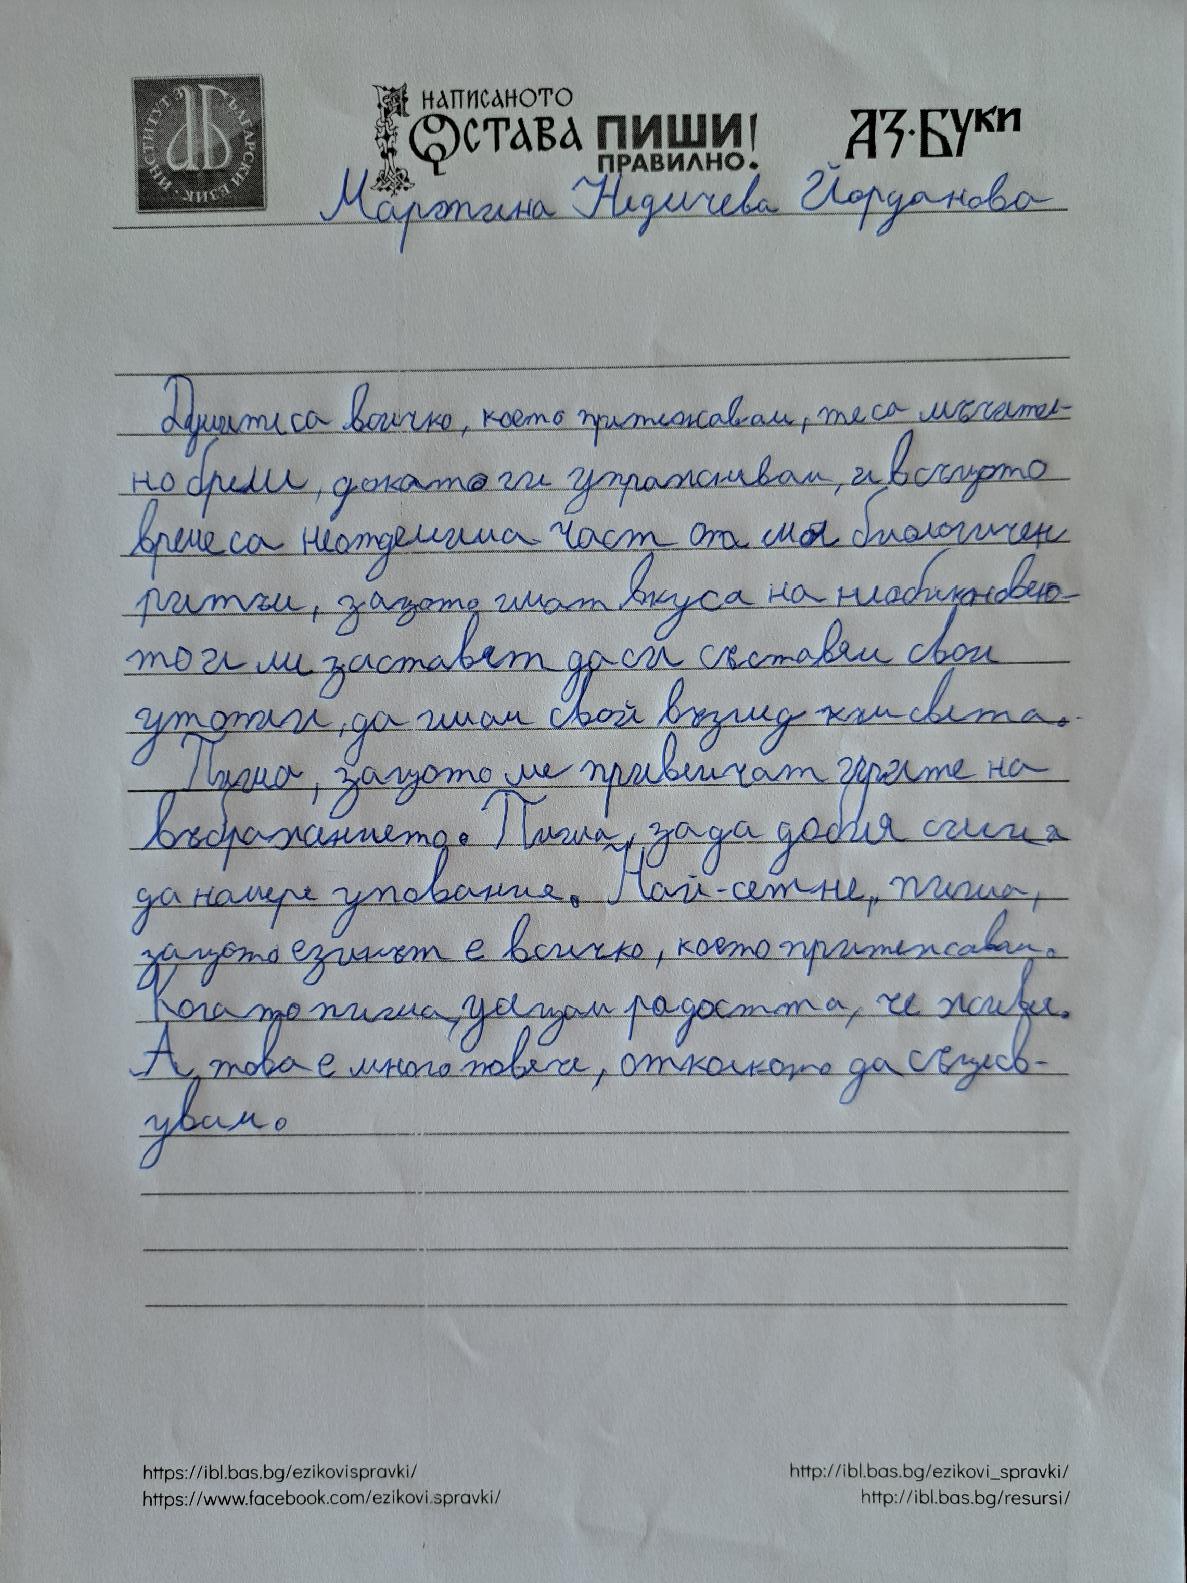 ИНСТИТУТ ЗА БЪЛГАРСКИ ЕЗИК
НАПИСАНОТО
ОСТАВА ПИШИ!
ПРАВИЛНО.
АЗ·БУКИ
Мартина Недичева Йорданова
Думите са всичко, което притежавам, те са мъчител-
но бреме, докато ги упражнявам, и в същото
време са неотделима част от моя биологичен
ритъм, защото имат вкуса на необикновено-
то и ме заставят да си съставям свои
утопии, да имам свой възглед към света.
Пиша, защото ме привличат игрите на
въображението. Пиша, за да добия сили и
да намеря упование. Най-сетне, пиша,
защото езикът е всичко, което притежавам.
Когато пиша, усещам радостта, че живея.
А това е много повече, отколкото да същест-
вувам.
https://ibl.bas.bg/ezikovispravki/
https://www.facebook.com/ezikovi.spravki/
http://ibl.bas.bg/ezikovi_spravki/
http://ibl.bas.bg/resursi/